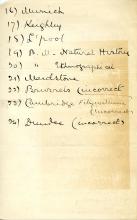 16) Munich
17) Keighley
18) L'pool
19) B.M. Natural History
20) " Ethnographical
21) Maidstone
22) Powerois (incorrect
23) Cambridge Fitzwilliam (incorrect)
24) Dundee (incorrect)